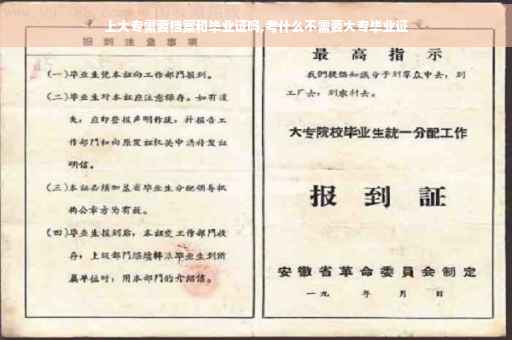 上大专需要档案和毕业证吗,考什么不需要大专毕业证
报到注意事项
(一)毕业生凭本证向工作部门报到。
(二)毕业生对本证应注意保存。如有遗
失,应即登报声明作废,并报告工
作部门和向原发证机关申请补发证
明信。
(三)本证必须加盖省毕业生分配领导机
构公章方为有效。
(四)毕业生报到后,本证交工作部门收
存;上级部门
毕业生到所
属单位时,用本部门的介绍信。
最高指示
我们提倡知识分子到群众中去,到
工厂去,到农村去。
大专院校毕业生统一分配工作
报到证
安徽省革命委员会制定
一九 年 月 日